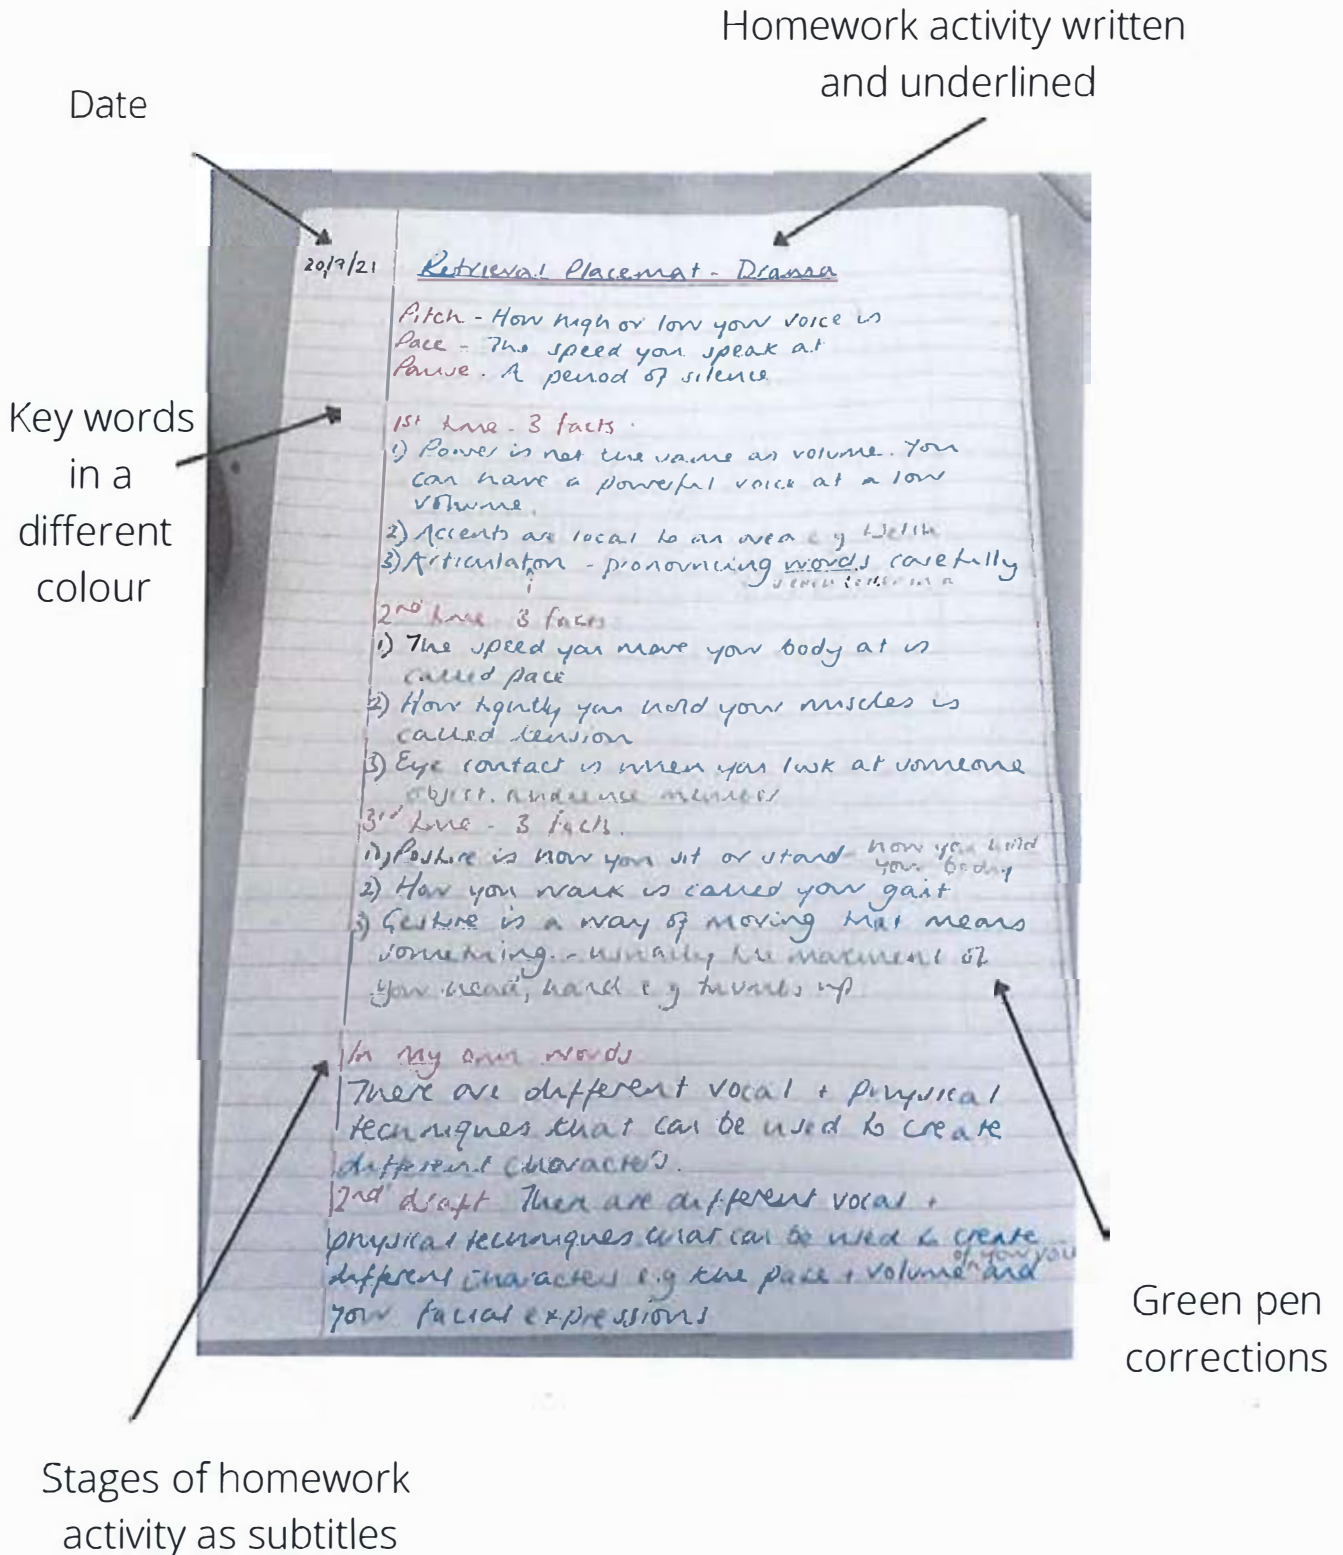 Homework activity written
and underlined
Date
20/9/21
Retrieval Placemat - Drama
Pitch - How high or low your voice is
Pace - The speed you speak at
Pause. A period of silence
Key words
in a
different
colour
1st time - 3 facts.
1) Power is not the same as volume. You
can have a powerful voice at a low
volume.
2) Accents are local to an area e.g Welsh
3) Articulaton - pronouncing words carefully
i
2nd time 3 facts
1) The speed you move your body at is
called pace
2) How tightly you hold your muscles is
called tension
3) Eye contact is when you look at someone
object, audience member
3rd time - 3 facts.
1) Posture is how you sit or stand - how you hold
your body
2) How you walk is called your gait
3) Gesture is a way of moving that means
something. - usually the movement of
your head, hand e.g thumbs up
In my own words
There are different vocal + physical
techniques that can be used to create
different characters.
2nd draft There are different vocal +
physical techniques that can be used to create
different characters e.g the pace + volume of your and
your facial expressions
Green pen
corrections
Stages of homework
activity as subtitles